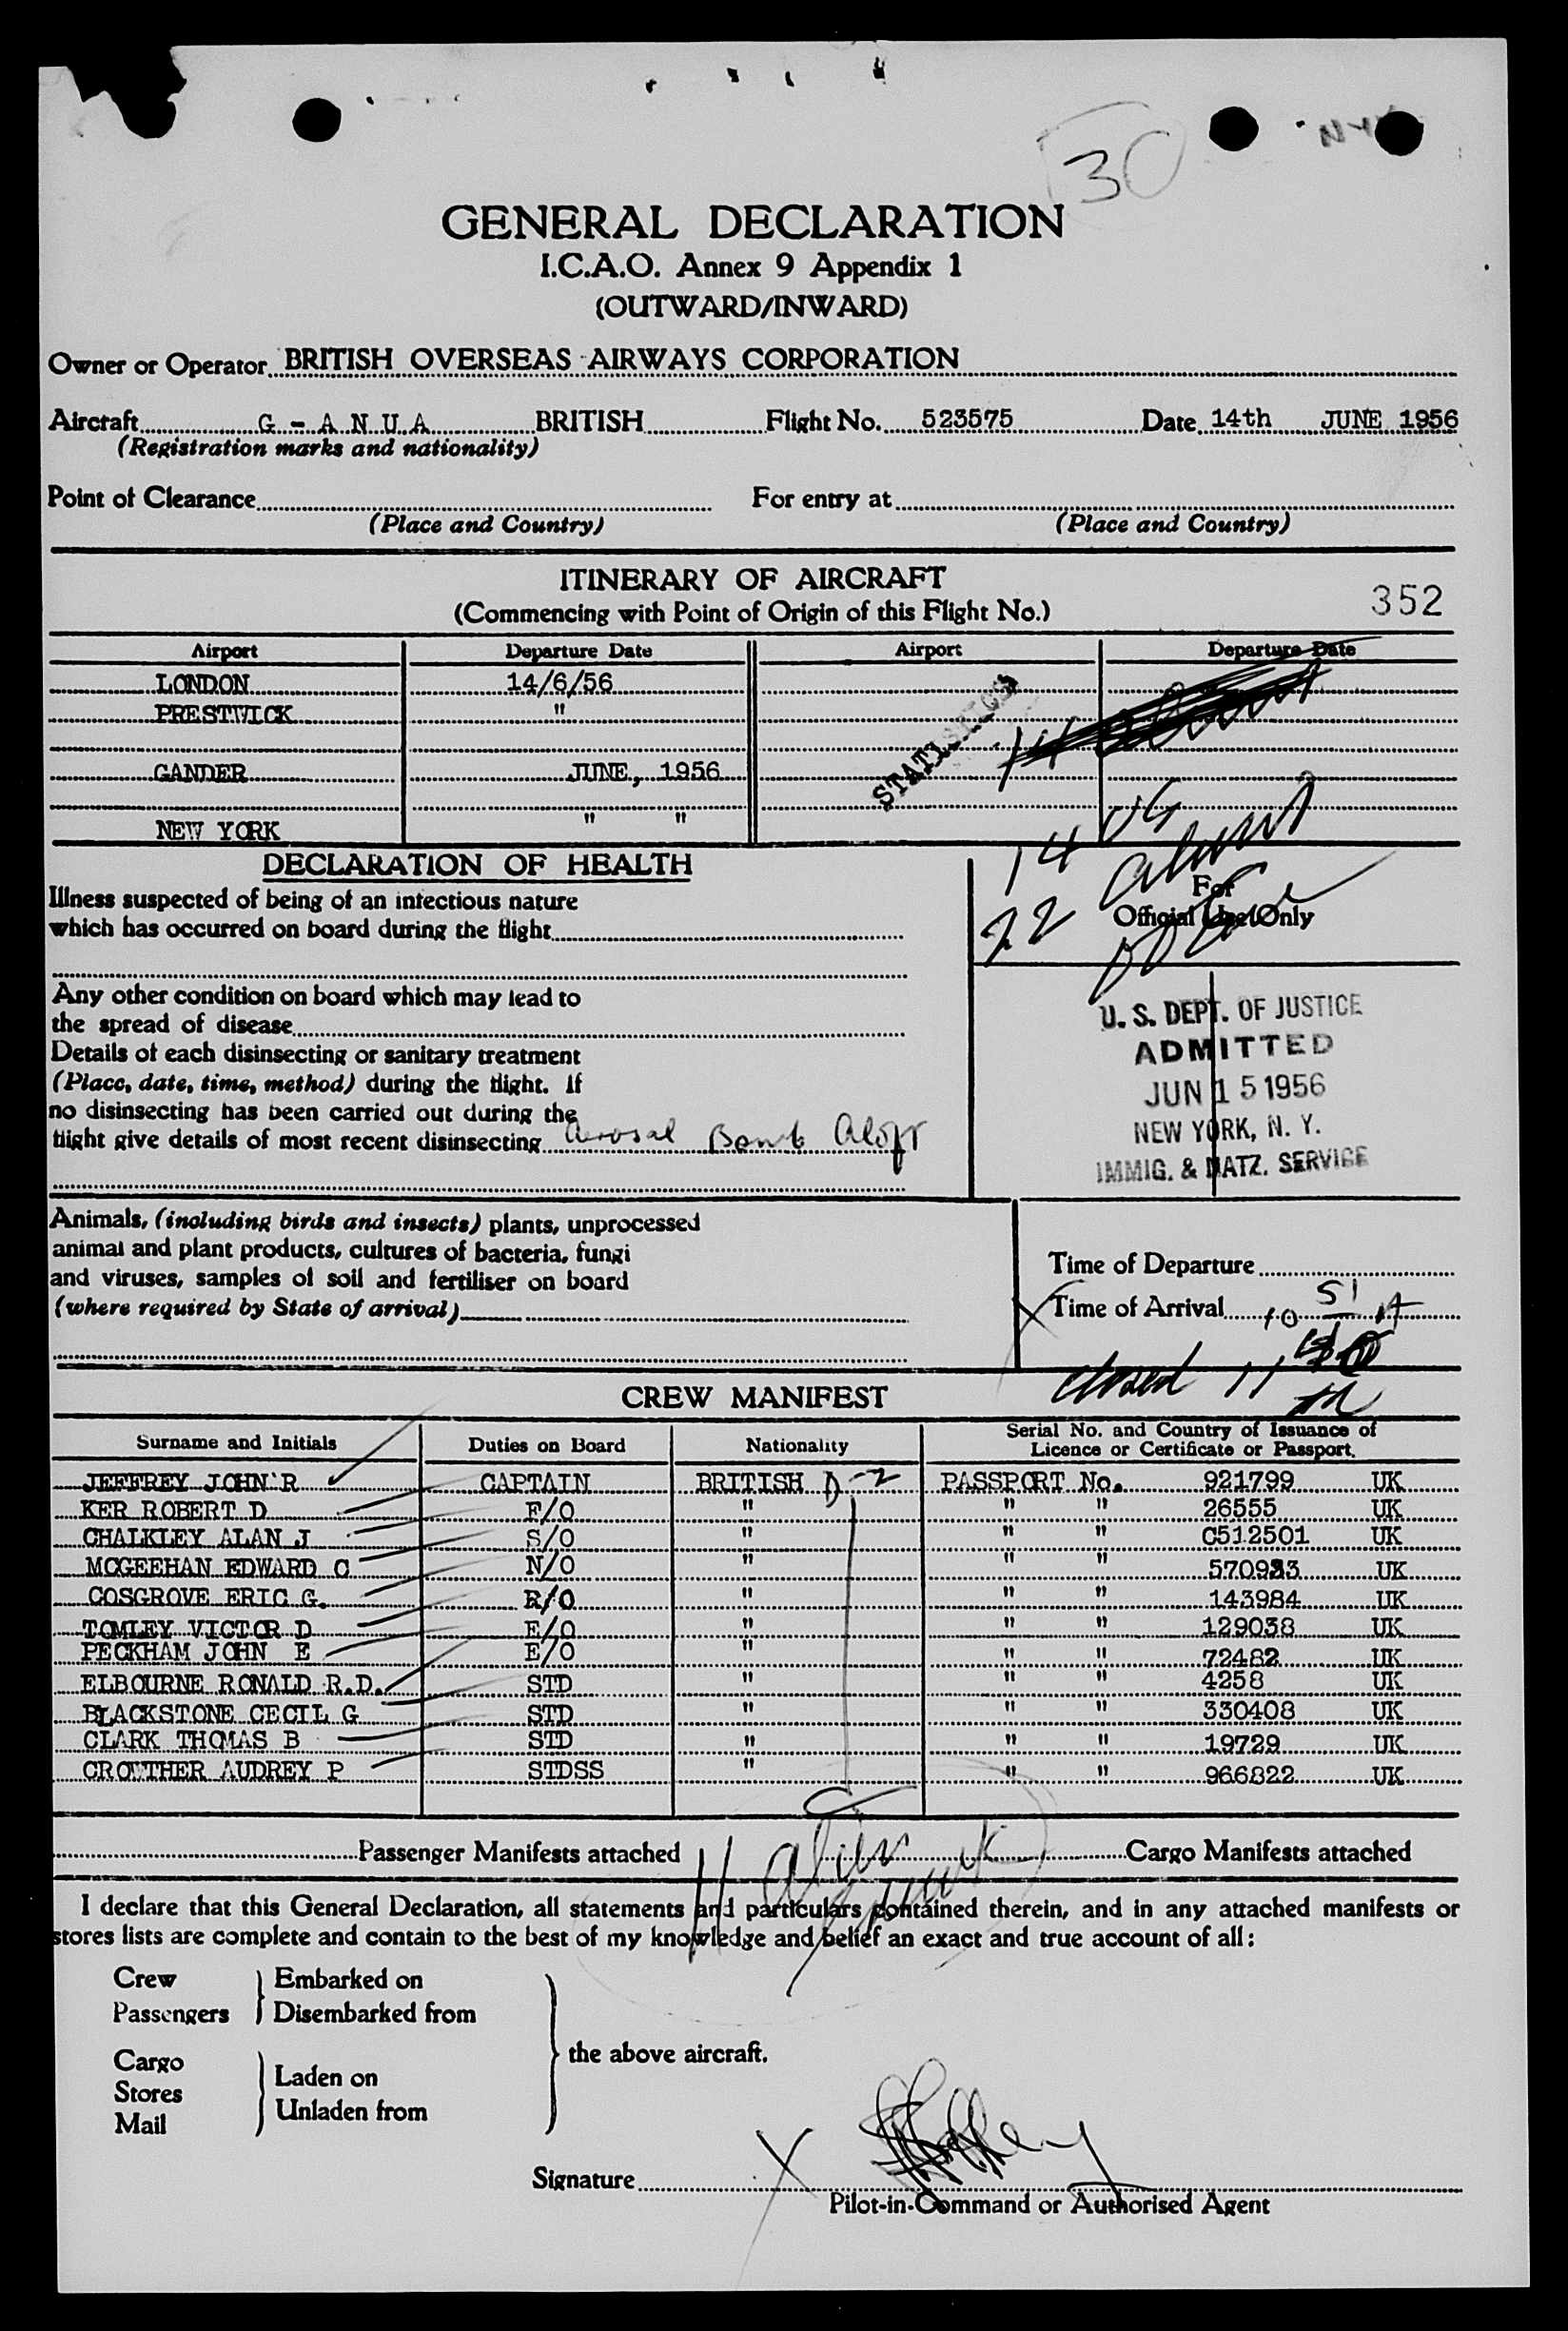 30
GENERAL DECLARATION
I.C.A.O. Annex 9 Appendix 1
(OUTWARD/INWARD)
Owner or Operator BRITISH OVERSEAS AIRWAYS CORPORATION
Aircraft G - A N U A BRITISH Flight No. 523575 Date 14th JUNE 1956
(Registration marks and nationality)
Point of Clearance For entry at
(Place and Country) (Place and Country)
ITINERARY OF AIRCRAFT
(Commencing with Point of Origin of this Flight No.) 352
Airport Departure Date Airport Departure Date
LONDON 14/6/56
PRESTWICK "
GANDER JUNE, 1956
STATISTICS
NEW YORK " "
14
22
DECLARATION OF HEALTH
Illness suspected of being of an infectious nature
which has occurred on board during the flight
For
Official Use Only
Any other condition on board which may lead to
the spread of disease
Details of each disinsecting or sanitary treatment
(Place, date, time, method) during the flight. If
no disinsecting has been carried out during the
flight give details of most recent disinsecting Aerosal Bomb Aloft
U. S. DEPT. OF JUSTICE
ADMITTED
JUN 15 1956
NEW YORK, N. Y.
IMMIG. & NATZ. SERVICE
Animals, (including birds and insects) plants, unprocessed
animal and plant products, cultures of bacteria, fungi
and viruses, samples of soil and fertiliser on board
(where required by State of arrival)
Time of Departure
Time of Arrival 10 51 A
closed 11
CREW MANIFEST
Surname and Initials Duties on Board Nationality Serial No. and Country of Issuance of
Licence or Certificate or Passport.
JEFFREY JOHN R CAPTAIN BRITISH D-2 PASSPORT No. 921799 UK
KER ROBERT D F/O " " " 26555 UK
CHALKLEY ALAN J S/O " " " C512501 UK
MCGEEHAN EDWARD C N/O " " " 570933 UK
COSGROVE ERIC G. R/O " " " 143984 UK
TOMLEY VICTOR D E/O " " " 129038 UK
PECKHAM JOHN E E/O " " " 72482 UK
ELBOURNE RONALD R.D. STD " " " 4258 UK
BLACKSTONE CECIL G STD " " " 330408 UK
CLARK THOMAS B STD " " " 19729 UK
CROWTHER AUDREY P STDSS " " " 966822 UK
Passenger Manifests attached Cargo Manifests attached
11 alien
I declare that this General Declaration, all statements and particulars contained therein, and in any attached manifests or
stores lists are complete and contain to the best of my knowledge and belief an exact and true account of all:
Crew Embarked on
Passengers Disembarked from
the above aircraft.
Cargo
Stores Laden on
Mail Unladen from
Signature
Pilot-in-Command or Authorised Agent